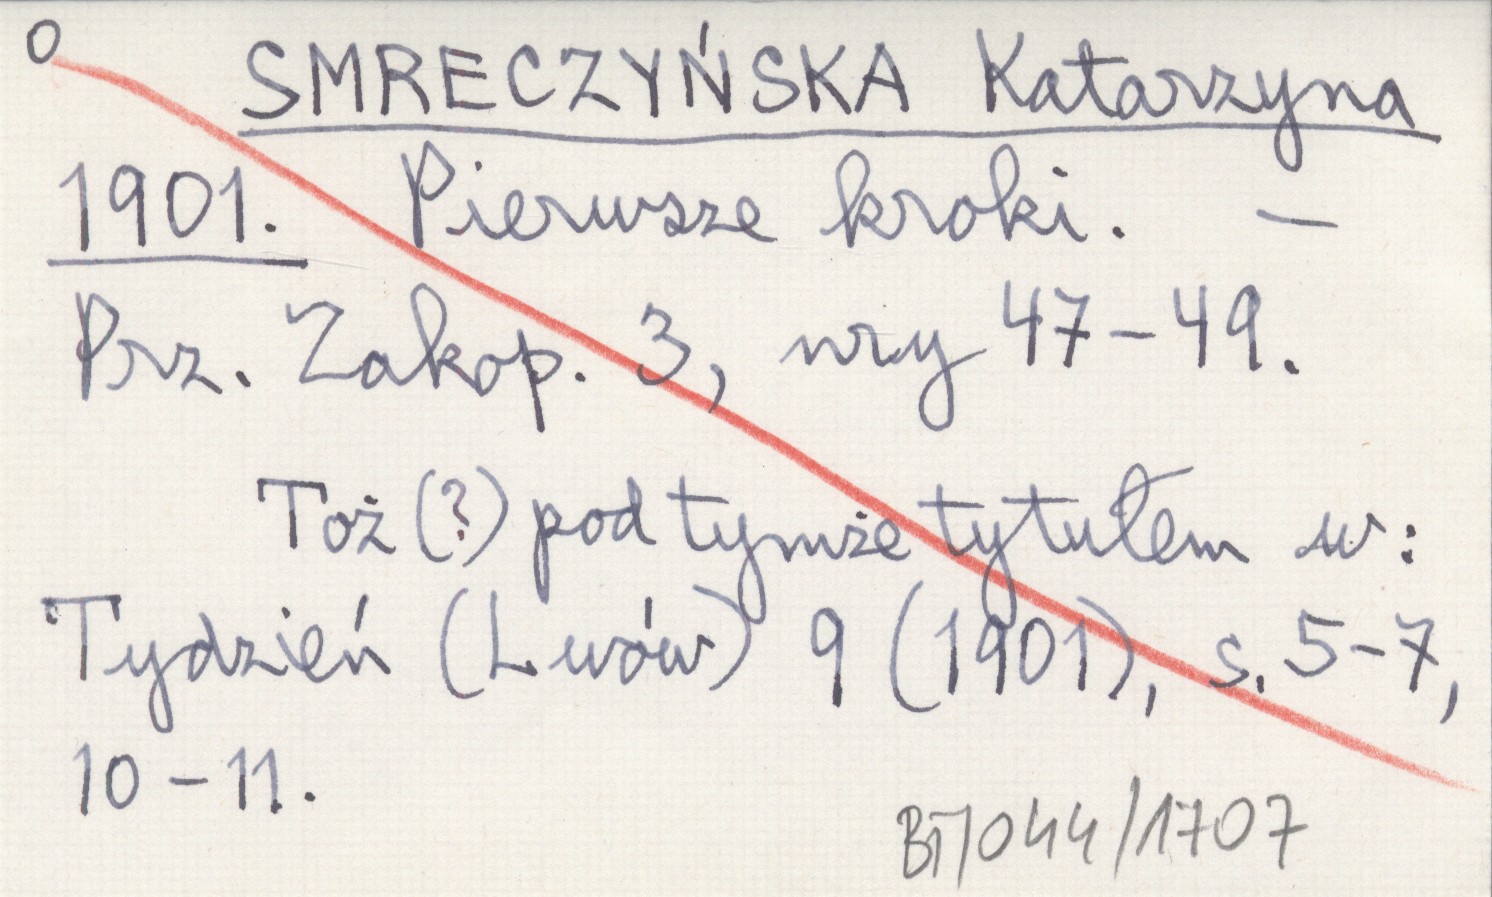 O
SMRECZYŃSKA Katarzyna
1901. Pierwsze kroki. —
Prz. Zakop. 3, nry 47-49.
Toż (?) pod tymże tytułem w:
Tydzień (Lwów) 9 (1901), s. 5-7,
10-11.
BT/044/1707